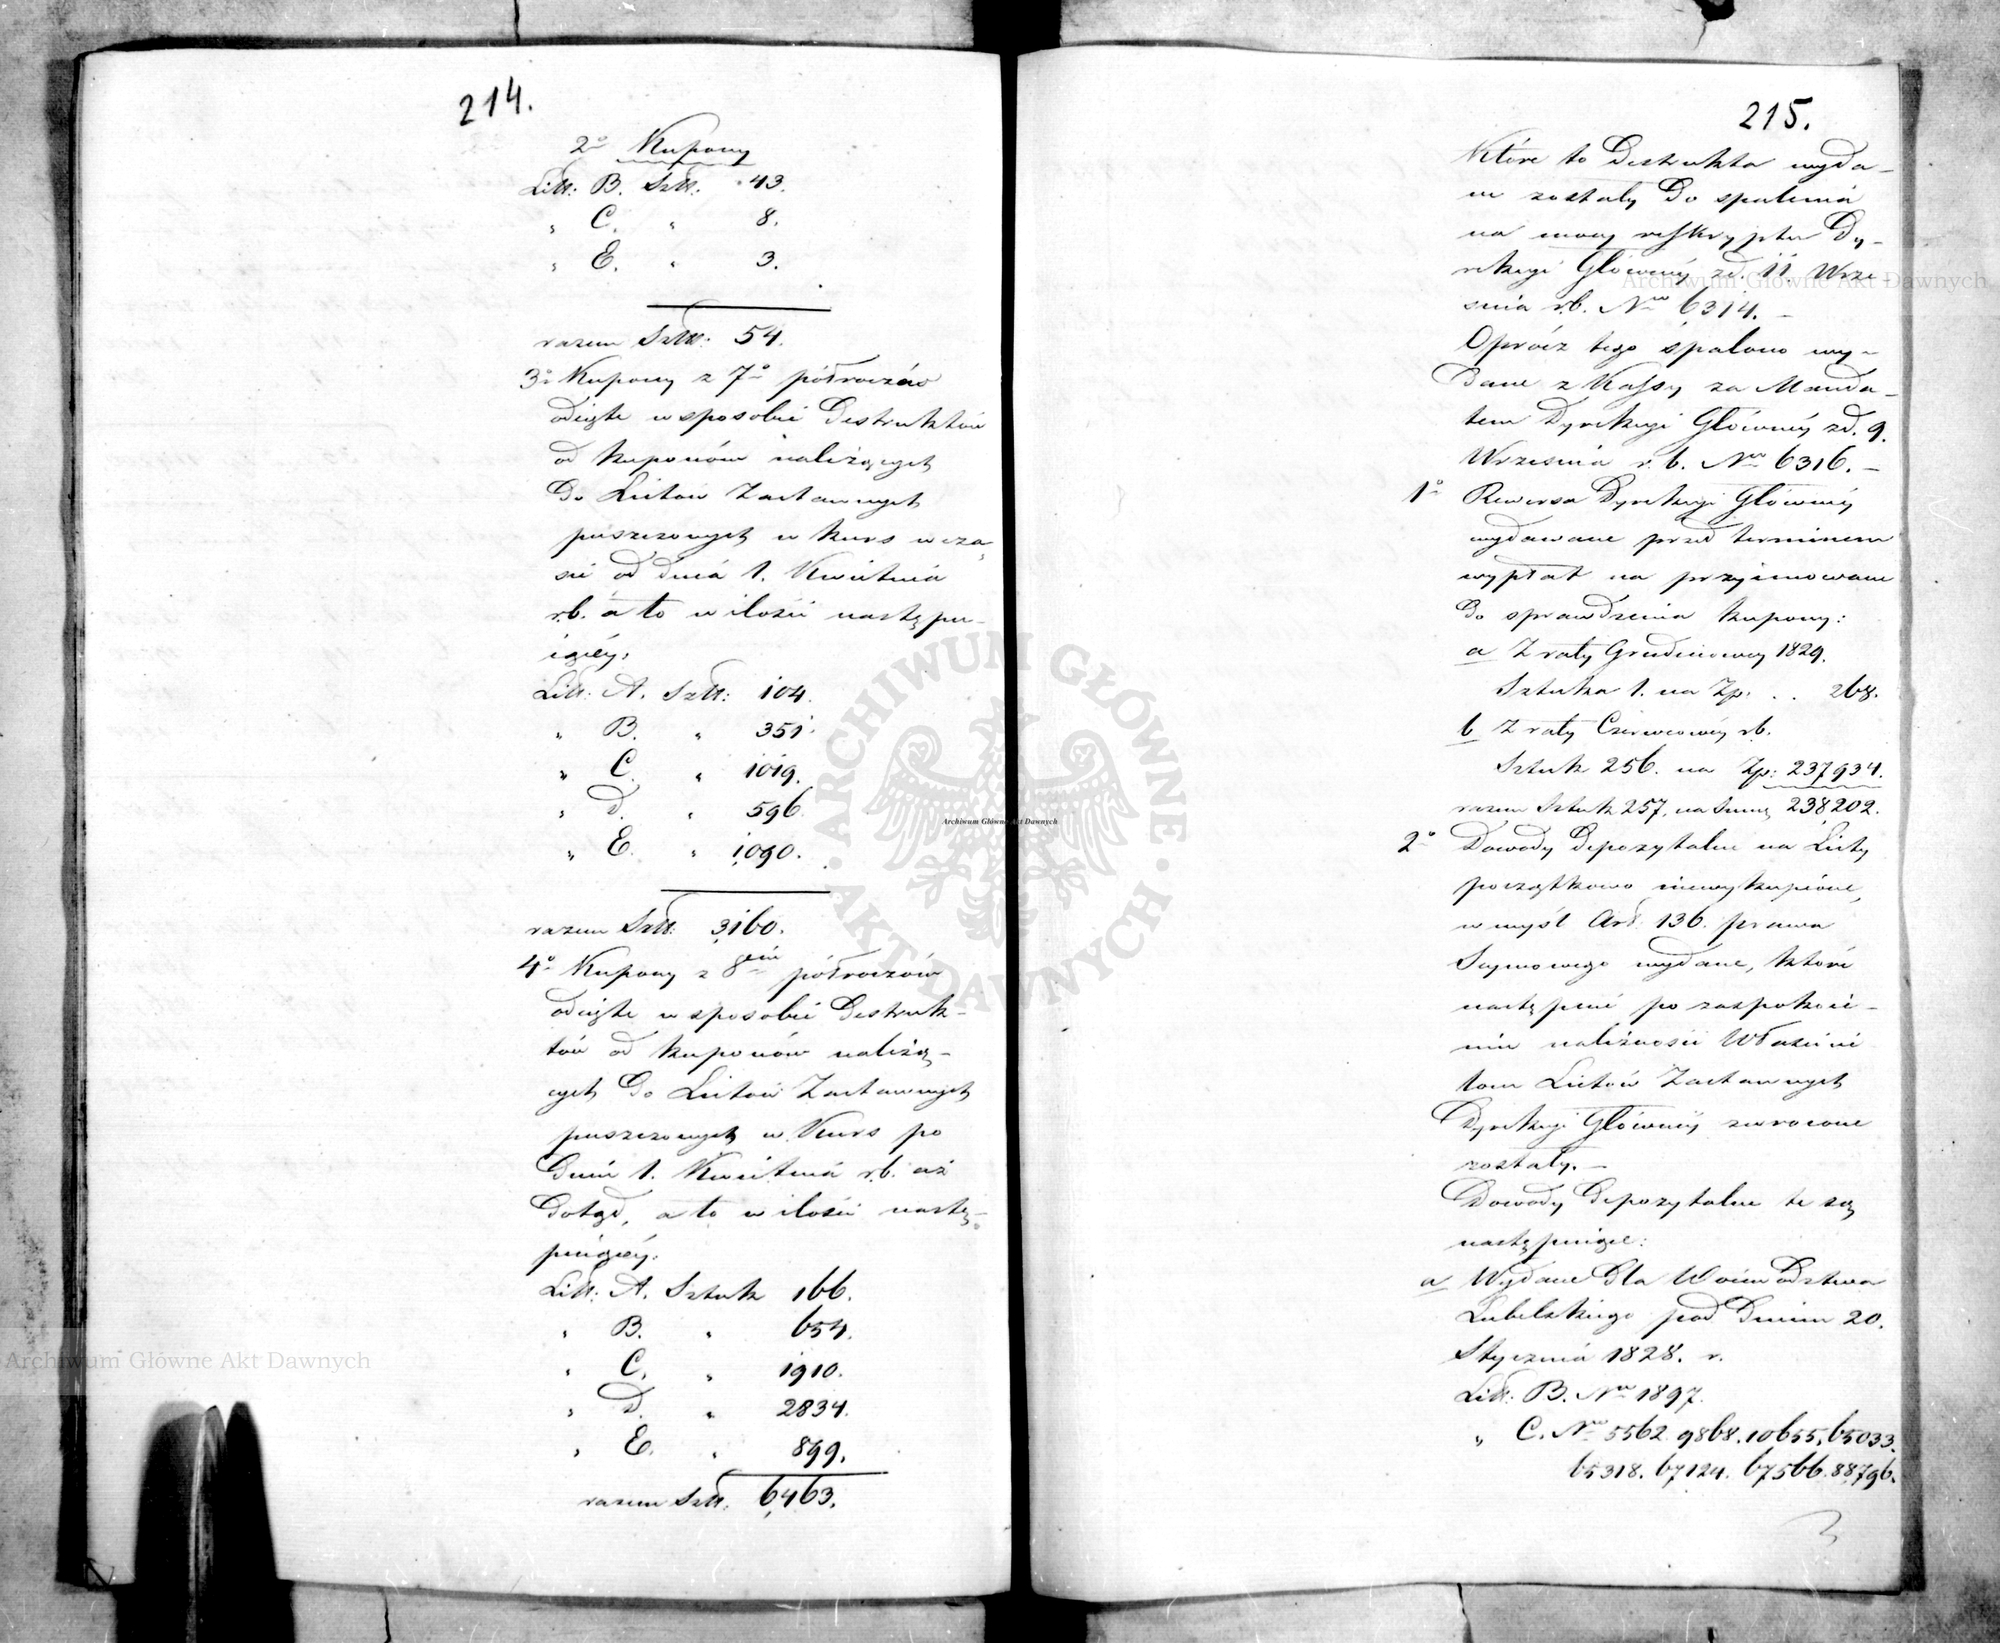 214.
2o Kupony
Litt: B. Sztt: 43.
„ C. „ 8.
„ E. „ 3.
razem Sztt: 54.
3o Kupony z 7o półroczów
odcięte w sposobie Destruktów
od kuponów należących
do Listów Zastawnych
puszczonych w kurs w cza-
sie od dnia 1. Kwietnia
r.b. a to w ilości następu-
iącéy:
Litt: A. Sztt: 104.
„ B. „ 351.
„ C. „ 1019.
„ D. „ 596.
„ E. „ 1,090.
razem Sztt: 3,160.
4o Kupony z 8miu półroczów
odcięte w sposobie Destruk-
tów od kuponów należą-
cych do Listów Zastawnych
puszczonych w Kurs po
dniu 1. Kwietnia r.b. aż
dotąd, a to w ilości nastę-
puiącéy:
Litt: A. Sztuk 166.
„ B. „ 654.
„ C. „ 1910.
„ D. „ 2834.
„ E. „ 899.
razem Sztt: 6,463.
215.
Które to Destrukta wyda-
ne zostały do spalenia
na mocy reskryptu Dy-
rekcyi Głównéy zd. 11 Wrze
śnia r.b. Nro 6314. –
Oprócz tego spalono wy-
dane z Kassy za Manda-
tem Dyrekcyi Głównéy zd. 9.
Września r.b. Nro 6316. –
1o Rewersa Dyrekcyi Głównéy
wydawane przed terminem
wypłat na przyimowane
do sprawdzenia kupony:
a Z raty Grudniowey 1829.
Sztuka 1. na Zp. . . 268.
b Z raty Czerwcowéy r.b.
Sztuk 256. na Zp: 237934.
razem Sztuk 257, na Summę 238,202.
2o Dowody depozytalne na Listy
początkowo niewykupione,
w myśl Art: 136. prawa
Seymowego wydane, które
następnie po zaspokoie-
niu należności Właścicie
lom Listów Zastawnych
Dyrekcyi Głównéy zwrócone
zostały. –
Dowody depozytalne te są
następuiące:
a Wydane dla Woiewództwa
Lubelskiego pod dniem 20.
Stycznia 1828. r.
Litt: B. Nro 1897.
„ C. Nro 5562. 9868. 10655, 65033.
65318. 67124. 67566. 88,796.
Archiwum Główne Akt Dawnych
Archiwum Główne Akt Dawnych
Archiwum Główne Akt Dawnych
ARCHIWUM GŁÓWNE · AKT DAWNYCH ·